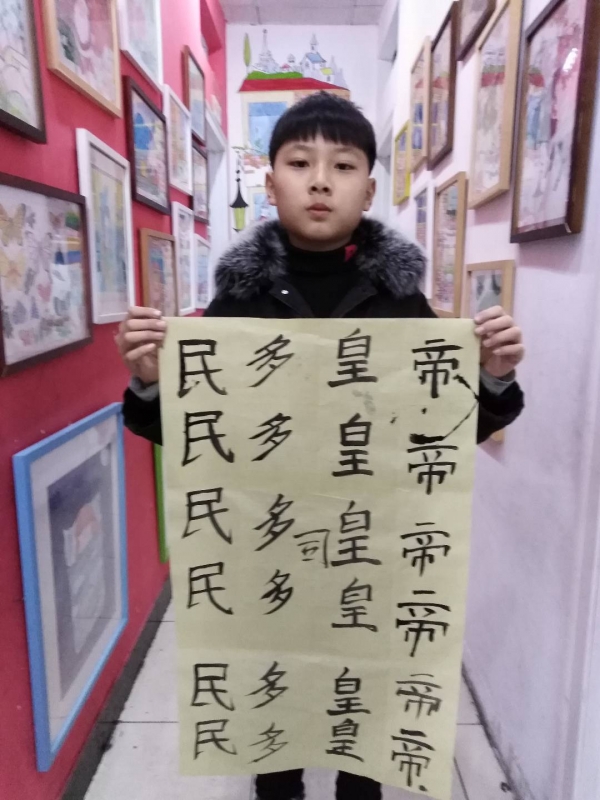 民多皇帝
民多皇帝
民多司皇帝
民多皇帝
民多皇帝
民多皇帝